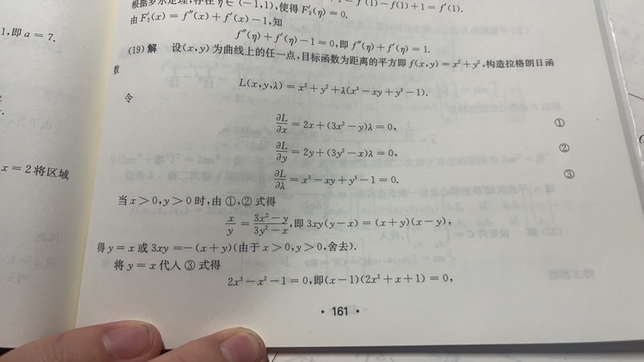 根据罗尔定理,存在η∈(-1,1),使得F₂′(η)=0.
由F₂′(x)=f″(x)+f′(x)-1,知
f″(η)+f′(η)-1=0,即f″(η)+f′(η)=1.
1,即a=7.
(19)解 设(x,y)为曲线上的任一点,目标函数为距离的平方即f(x,y)=x²+y²,构造拉格朗日函
数
L(x,y,λ)=x²+y²+λ(x³-xy+y³-1).
令
∂L/∂x=2x+(3x²-y)λ=0, ①
∂L/∂y=2y+(3y²-x)λ=0, ②
∂L/∂λ=x³-xy+y³-1=0. ③
x=2将区域
当x>0,y>0时,由①,②式得
x/y=(3x²-y)/(3y²-x),即3xy(y-x)=(x+y)(x-y),
得y=x或3xy=-(x+y)(由于x>0,y>0,舍去).
将y=x代入③式得
2x³-x²-1=0,即(x-1)(2x²+x+1)=0,
· 161 ·